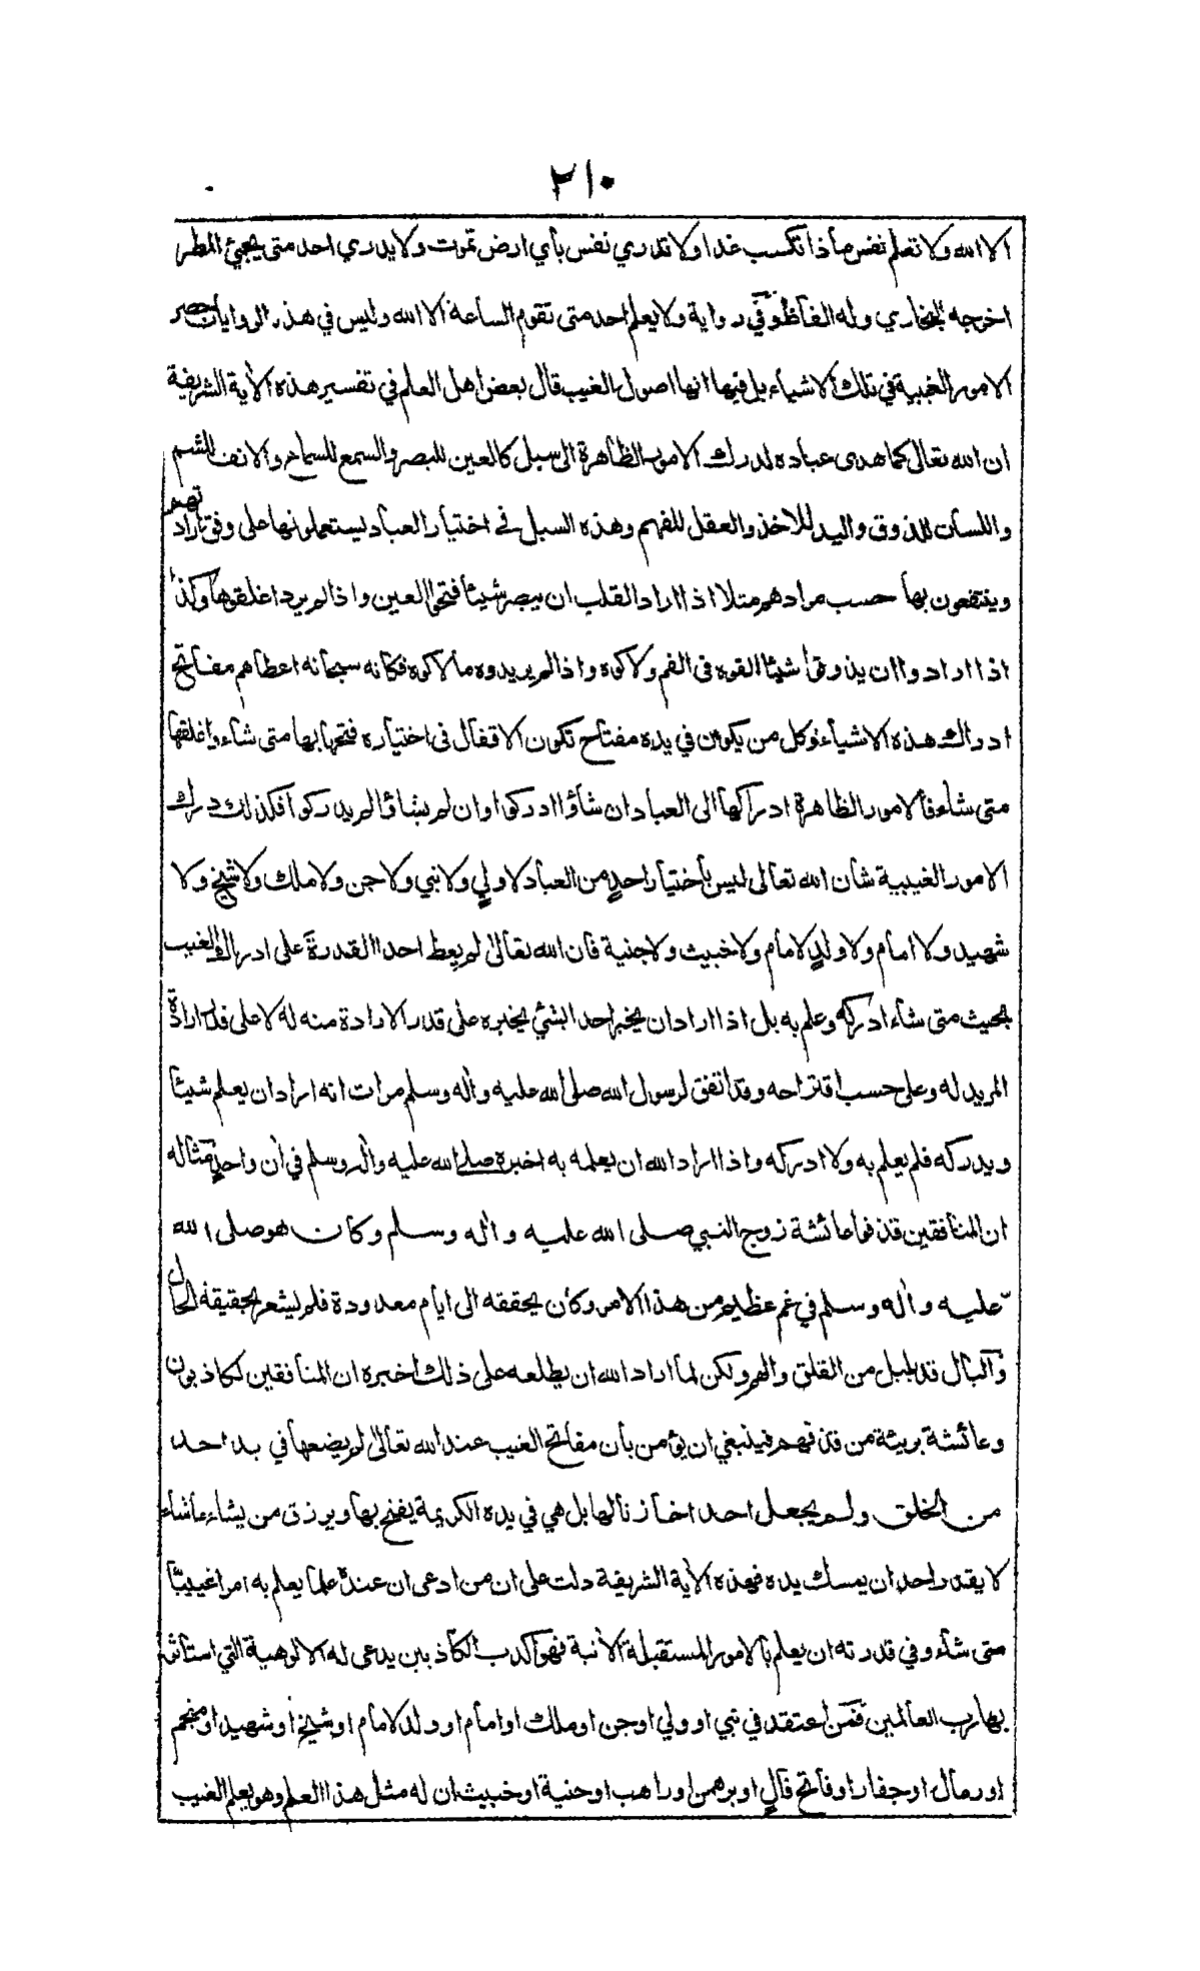 ٢١٠
الا الله ولا تعلم نفس ماذا تكسب غدا ولا تدري نفس بأي ارض تموت ولا يدري احد متى يجيئ المطر
اخرجه البخاري وله الفاظ وفي رواية ولا يعلم احد متى تقوم الساعة الا الله وليس في هذه الروايات حصر
الامور الغيبية في تلك الاشياء بل فيها انها اصول الغيب قال بعض اهل العلم في تفسير هذه الآية الشريفة
ان الله تعالى كما هدى عباده لدرك الامور الظاهرة الى سبل كالعين للبصر والسمع للسماع والانف للشم
واللسان للذوق واليد للاخذ والعقل للفهم وهذه السبل في اختيار العباد يستعملونها على وفق ارادتهم
وينتفعون بها حسب مرادهم مثلا اذا اراد القلب ان يبصر شيئا فتحوا العين واذا لم يرد اغلقوها وكذا
اذا ارادوا ان يذوقوا شيئا القوه في الفم ولاكوه واذا لم يريدوه ما لاكوه فكانه سبحانه اعطاهم مفاتح
ادراك هذه الاشياء وكل من يكون في يده مفتاح تكون الاقفال في اختياره فتحها بها متى شاء واغلقها
متى شاء فالامور الظاهرة ادراكها الى العباد ان شاؤا ادركوا وان لم يشاؤا لم يدركوا فكذلك درك
الامور الغيبية شأن الله تعالى ليس بأختيار احدٍ من العباد لا ولي ولا نبي ولا جن ولا ملك ولا شيخ ولا
شهيد ولا امام ولا ولد لامام ولا خبيث ولا جنية فان الله تعالى لم يعط احدا القدرة على ادراك الغيب
بحيث متى شاء ادركه وعلم به بل اذا اراد ان يخبر احدا بشئ يخبره على قدر الارادة منه له لا على قدر ارادة
المريد له وعلى حسب اقتراحه وقد اتفق لرسول الله صلى الله عليه وآله وسلم مرات انه اراد ان يعلم شيئا
ويدركه فلم يعلم به ولا ادركه واذا اراد الله ان يعلمه به اخبره صلى الله عليه وآله وسلم في آن واحدٍ مثاله
ان المنافقين قذفوا عائشة زوج النبي صلى الله عليه وآله وسلم وكان هو صلى الله
عليه وآله وسلم في غم عظيم من هذا الامر وكان يحققه الى ايام معدودة فلم يشعر بحقيقة الحال
والبال قد بلبل من القلق والهم ولكن لما اراد الله ان يطلعه على ذلك اخبره ان المنافقين لكاذبون
وعائشة بريئة من قذفهم فينبغي ان يؤمن بأن مفاتح الغيب عند الله تعالى لم يضعها في يد احد
من الخلق ولم يجعل احدا خازنا لها بل هي في يده الكريمة يفتح بها ويرزق من يشاء ما شاء
لا يقدر احد ان يمسك يده فهذه الآية الشريفة دلت على ان من ادعى ان عنده علما يعلم به امرا غيبيا
متى شاء وفي قدرته ان يعلم بالامور المستقبلة الآتية فهو اكذب الكاذبين يدعى له الالوهية التي استأثر
بها رب العالمين فمن اعتقد في نبي او ولي او جن او ملك او امام او ولد لامام او شيخ او شهيد او منجم
او رمال او جفار او فاتح فالٍ او برهمن او راهب او جنية او خبيث ان له مثل هذا العلم وهو يعلم الغيب